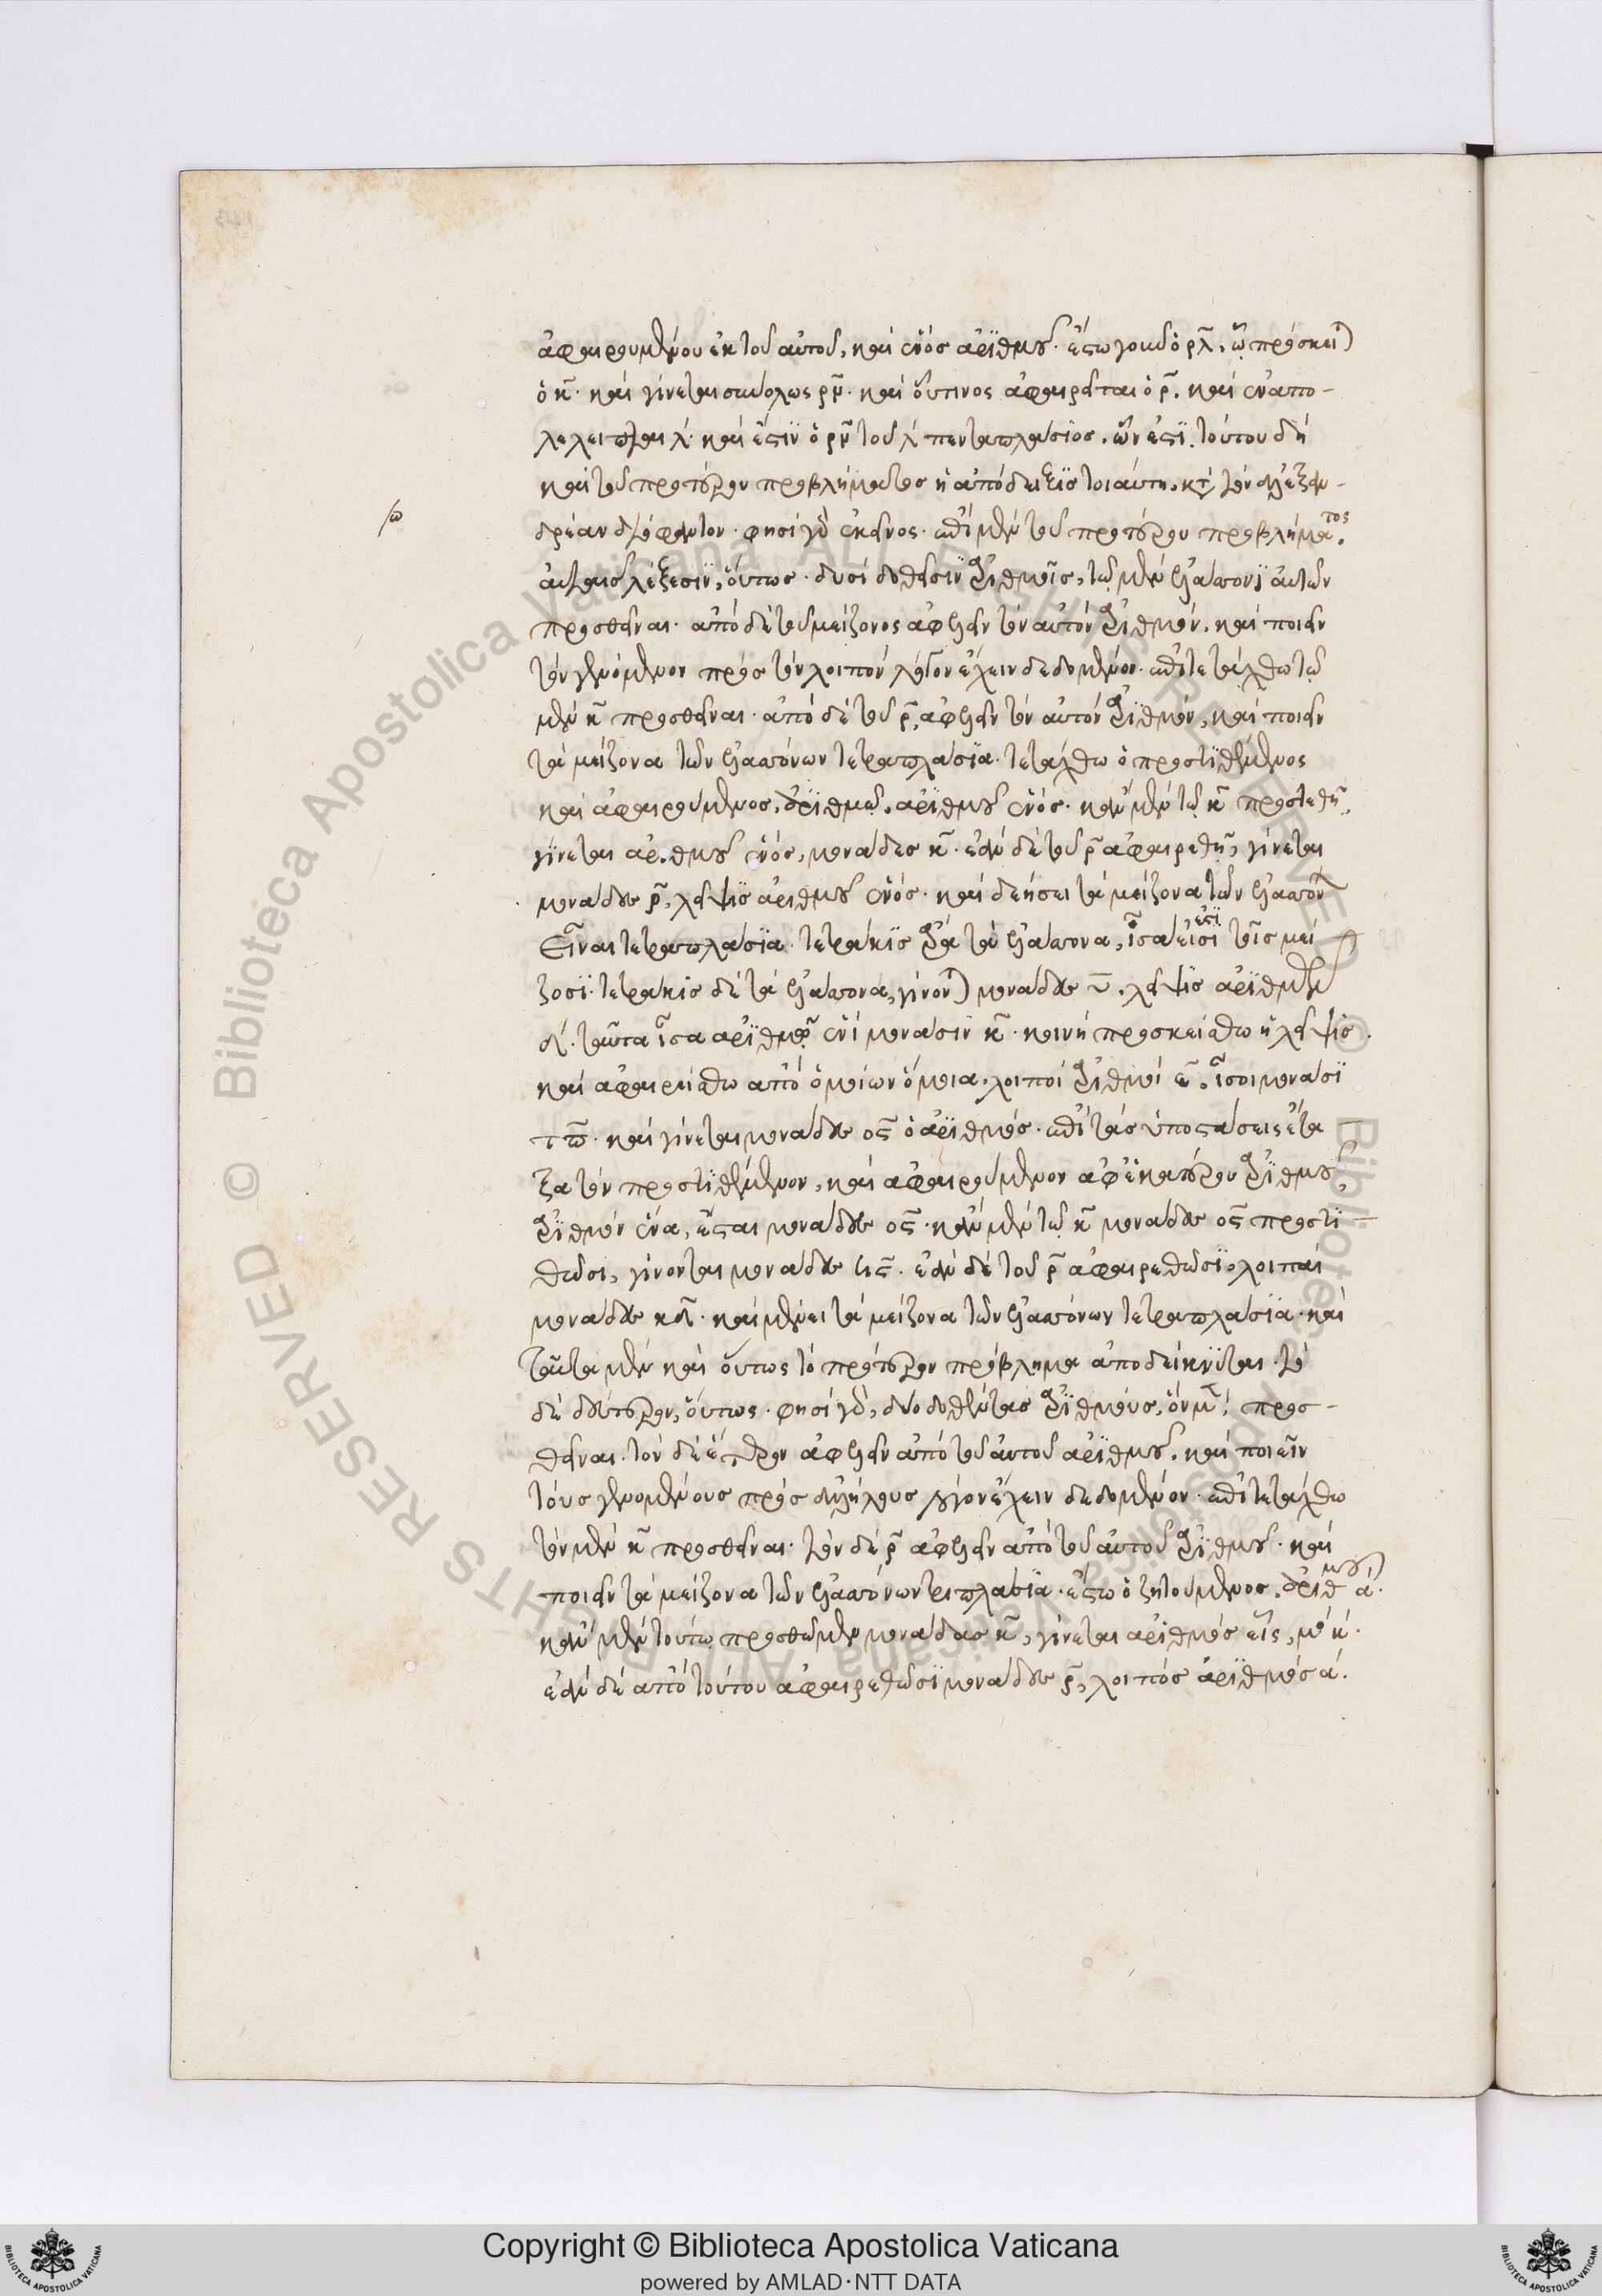 ἀφαιρουμένου ἐκ τοῦ αὐτοῦ, καὶ ἑνός ἀρϊθμοῦ. ἔστω γοῦν ὁ ρλ, ᾧ πρόσκειται
ὁ κ. καὶ γίνεται συνόλως ρν. καὶ οὕτινος ἀφαιρεῖται ὁ ρ. καὶ ἐναπο-
λέλειπται λ. καὶ ἔστιν ὁ ρν τοῦ λ πενταπλασίος. ὧν ἐστϊ. τούτου δὴ
καὶ τοῦ προτέρου προβλήματος ἡ ἀπόδειξϊς τοιαύτη. κτ τὸν ἀλεξαν-
δρέαν διόφαντον. φησὶ γὰρ ἐκεῖνος. ἐπὶ μὲν τοῦ προτέρου προβλήματος.
αὐταῖς λέξεσϊν, οὕτως. δυσὶ δοθεῖσϊν ἀριθμοῖς, τῷ μὲν ἐλάττονϊ αὐτῶν
προσθεῖναι. ἀπὸ δὲ τοῦ μείζονος ἀφελεῖν τὸν αὐτὸν ἀριθμόν. καὶ ποιεῖν
τὸν γενόμενον πρὸς τὸν λοιπὸν λόγον ἔχειν δεδομένον. ἐπιτετάχθω τῷ
μὲν κ προσθεῖναι. ἀπὸ δὲ τοῦ ρ, ἀφελεῖν τὸν αὐτὸν ἀρϊθμόν, καὶ ποιεῖν
τὰ μείζονα τῶν ἐλαττόνων τετραπλάσϊα. τετάχθω ὁ προστϊθέμενος
καὶ ἀφαιρούμενος, ἀρϊθμῷ. ἀρϊθμοῦ ἑνός. κἂν μὲν τῷ κ προστεθῇ.
γίνεται αριθμοῦ ἑνός, μονάδες κ. ἐὰν δὲ τοῦ ρ ἀφαιρεθῇ, γίνεται
μονάδων ρ, λεῖψϊς ἀριθμοῦ ἑνός. καὶ δεήσει τὰ μείζονα τῶν ἐλαττόνων
εἶναι τετραπλάσϊα. τετράκϊς ἄρα τὰ ἐλάττονα, ἴσα εἰσὶ ἐστϊ τοῖς μεί
ζοσϊ. τετράκϊς δὲ τὰ ἐλάττονα, γίνονται μονάδων υ. λεῖψϊς ἀρϊθμῶν
δ. ταῦτα ἴσα ἀρϊθμῷ ἑνὶ μονάσϊν κ. κοινὴ προσκείσθω ἡ λεῖψϊς.
καὶ ἀφαιρείσθω ἀπὸ ὁμοίων ὅμοια. λοιποὶ ἀριθμοὶ ε. ἴσοι μονάσϊ
τπ. καὶ γίνεται μονάδων ος ὁ ἀρϊθμός. ἐπὶ τὰς ὑποστάσεις ἔτα
ξα τὸν προστϊθέμενον, καὶ ἀφαιρούμενον ἀφ' ἑκατέρου ἀρϊθμοῦ,
ἀρϊθμὸν ἕνα, ἔσται μονάδων ος. κἂν μὲν τῷ κ μονάδων ος προστε-
θῶσι, γίνονται μονάδων ϟς. ἐὰν δὲ τοῦ ρ ἀφαιρεθῶσϊ, λοιπαὶ
μονάδων κδ. καὶ μένει τὰ μείζονα τῶν ἐλαττόνων τετραπλάσϊα. καὶ
ταῦτα μὲν καὶ οὕτως τὸ πρότερον πρόβλημα ἀποδείκνϋται. τὸ
δὲ δεύτερον, οὕτως. φησὶ γὰρ, δύο δοθέντας ἀρϊθμούς, ὃν μὲν προσ-
θεῖναι. τὸν δὲ ἕτερον ἀφελεῖν ἀπὸ τοῦ αὐτοῦ ἀρϊθμοῦ. καὶ ποιεῖν
τοὺς γενομένους πρὸς ἀλλήλους λόγον ἔχειν δεδομένον. ἐπιτετάχθω
τὸν μὲν κ προσθεῖναι. τὸν δὲ ρ ἀφελεῖν ἀπὸ τοῦ αὐτοῦ ἀρϊθμοῦ. καὶ
ποιεῖν τὰ μείζονα τῶν ἐλαττόνων τετραπλάσϊα. ἔστω ὁ ζητούμενος, ἀριθμοῦ ά.
κἂν μὲν τούτῳ προσθῶμεν μονάδας κ, γίνεται ἀρϊθμὸς εἷς, μο κ.
ἐὰν δὲ ἀπὸ τούτου ἀφαιρεθῶσϊ μονάδων ρ, λοιπὸς ἀρϊθμὸς ά.
Copyright © Biblioteca Apostolica Vaticana
powered by AMLAD·NTT DATA